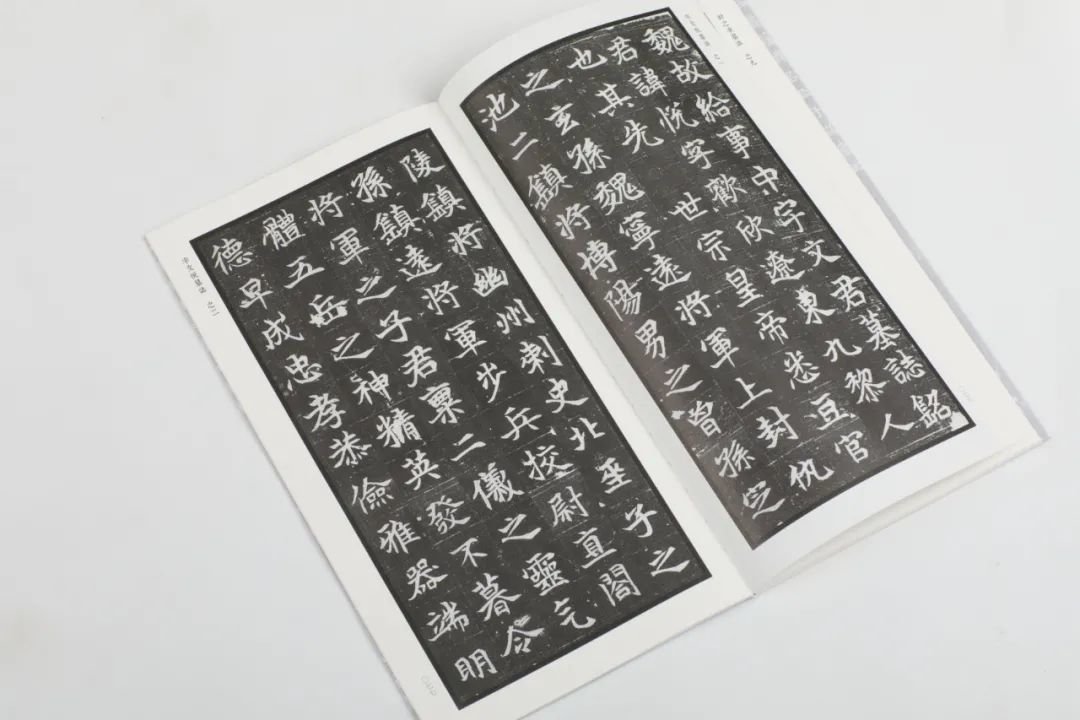 魏故給事中宇文君墓誌銘
君諱悅字歡欣遼東九黎人
也其先世宗皇帝豆官
之玄孫魏寧遠將軍上封仇
池二鎮將博陽男之曾孫
陵鎮將幽州刺史北子之
孫鎮遠將軍步兵挍尉直閤
將軍之子君稟二儀之靈气
體五岳之神精英發不暮令
德早成忠孝恭儉雅器端明
宇文悅墓誌 之二
〇七七